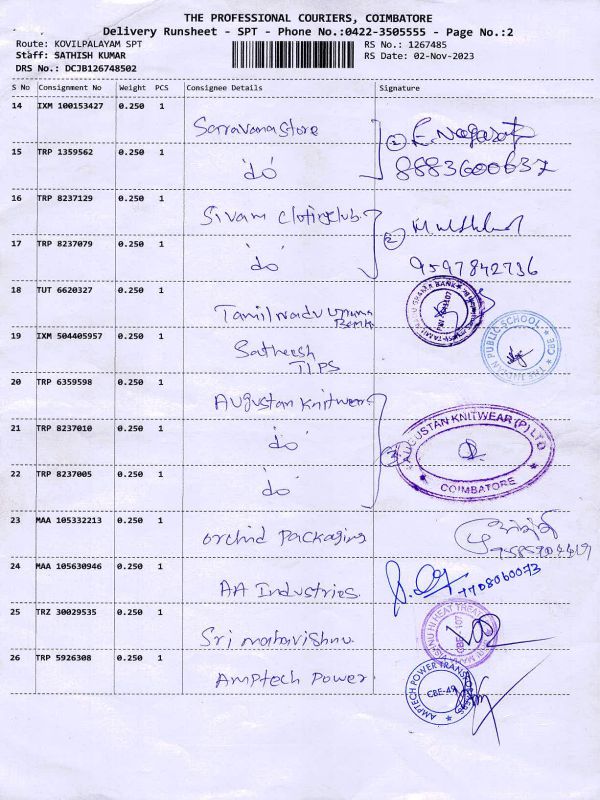 THE PROFESSIONAL COURIERS, COIMBATORE
Delivery Runsheet - SPT - Phone No.:0422-3505555 - Page No.:2
Route: KOVILPALAYAM SPT
RS No.: 1267485
Staff: SATHISH KUMAR
RS Date: 02-Nov-2023
DRS No.: DCJB126748502
S No Consignment No Weight PCS Consignee Details Signature
14 IXM 100153427 0.250 1
Sarravana store
15 TRP 1359562 0.250 1
do
2
8883600637
16 TRP 8237129 0.250 1
Sivam
17 TRP 8237079 0.250 1
do
2
9597842736
18 TUT 6620327 0.250 1
Tamil nadu
Bank
19 IXM 504405957 0.250 1
Satheesh
TIPS
PUBLIC SCHOOL
CBE
20 TRP 6359598 0.250 1
Augustan Knitwear
21 TRP 8237010 0.250 1
do
3
AUGUSTAN KNITWEAR (P) LTD
COIMBATORE
22 TRP 8237005 0.250 1
do
23 MAA 105332213 0.250 1
orchid packaging
24 MAA 105630946 0.250 1
AA Industries.
7708060073
25 TRZ 30029535 0.250 1
Sri mahavishnu.
HEAT
26 TRP 5926308 0.250 1
Amptech power
AMPTECH POWER
CBE-49